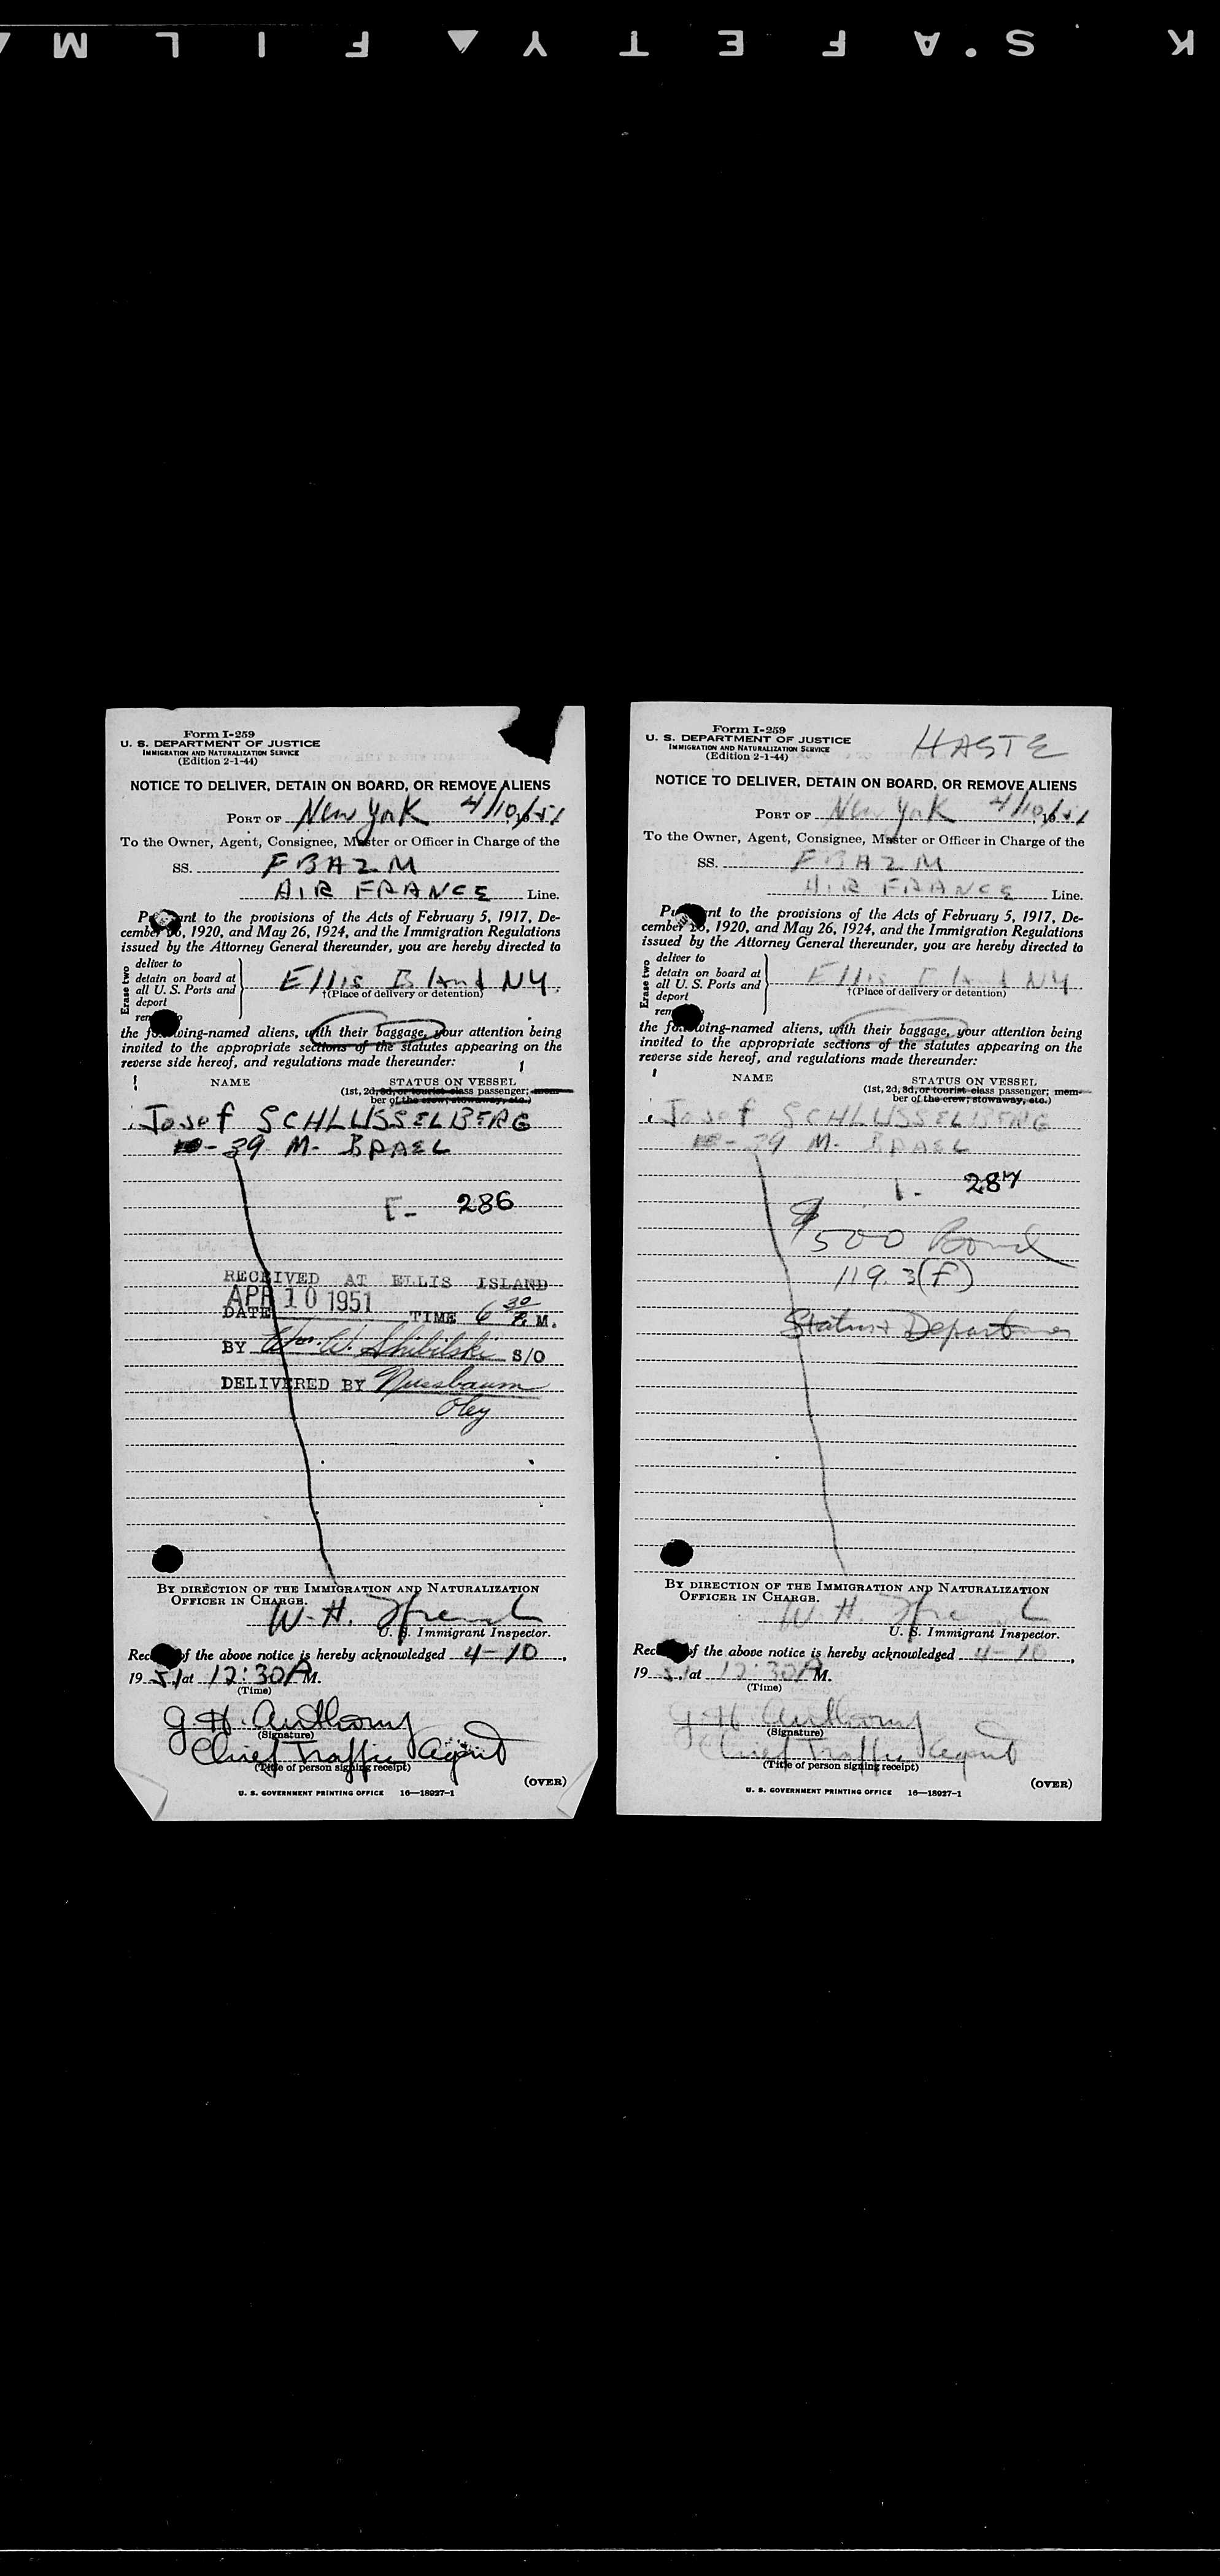 K S'A F E T Y ▲ F I L M
Form I-259
U. S. DEPARTMENT OF JUSTICE
IMMIGRATION AND NATURALIZATION SERVICE
(Edition 2-1-44)
NOTICE TO DELIVER, DETAIN ON BOARD, OR REMOVE ALIENS
PORT OF New York 4/10, 1951
To the Owner, Agent, Consignee, Master or Officer in Charge of the
SS. FBAZM
AIR FRANCE Line.
nt to the provisions of the Acts of February 5, 1917, De-
cember 26, 1920, and May 26, 1924, and the Immigration Regulations
issued by the Attorney General thereunder, you are hereby directed to
Erase two
deliver to
detain on board at
all U. S. Ports and
deport
Ellis Island NY.
†(Place of delivery or detention)
the following-named aliens, with their baggage, your attention being
invited to the appropriate sections of the statutes appearing on the
reverse side hereof, and regulations made thereunder:
NAME STATUS ON VESSEL
(1st, 2d, 3d, or tourist class passenger; mem-
ber of the crew; stowaway, etc.)
Josef SCHLUSSELBERG
- 39 M- ISRAEL
I- 286
RECEIVED AT ELLIS ISLAND
APR 10 1951
DATE TIME 6 30 P. M.
BY Wm. W. Shibilski S/O
DELIVERED BY Nussbaum
BY DIRECTION OF THE IMMIGRATION AND NATURALIZATION
OFFICER IN CHARGE.
W. H.
U. S. Immigrant Inspector.
of the above notice is hereby acknowledged 4-10,
19 51 at 12:30 A M.
(Time)
G H. Anthony
(Signature)
Chief Traffic Agent
(Title of person signing receipt)
(OVER)
U. S. GOVERNMENT PRINTING OFFICE 16—18027-1
Form I-259
U. S. DEPARTMENT OF JUSTICE
IMMIGRATION AND NATURALIZATION SERVICE
(Edition 2-1-44)
HASTE
NOTICE TO DELIVER, DETAIN ON BOARD, OR REMOVE ALIENS
PORT OF New York 4/10, 1951
To the Owner, Agent, Consignee, Master or Officer in Charge of the
SS. FBAZM
AIR FRANCE Line.
nt to the provisions of the Acts of February 5, 1917, De-
cember 26, 1920, and May 26, 1924, and the Immigration Regulations
issued by the Attorney General thereunder, you are hereby directed to
Erase two
deliver to
detain on board at
all U. S. Ports and
deport
Ellis Island NY
†(Place of delivery or detention)
the following-named aliens, with their baggage, your attention being
invited to the appropriate sections of the statutes appearing on the
reverse side hereof, and regulations made thereunder:
NAME STATUS ON VESSEL
(1st, 2d, 3d, or tourist class passenger; mem-
ber of the crew; stowaway, etc.)
Josef SCHLUSSELBERG
- 39 M- ISRAEL
1- 287
$500 Bond
119.3(F)
Status &
BY DIRECTION OF THE IMMIGRATION AND NATURALIZATION
OFFICER IN CHARGE.
W. H.
U. S. Immigrant Inspector.
of the above notice is hereby acknowledged 4-10,
19 51 at 12:30 A M.
(Time)
G H. Anthony
(Signature)
Chief Traffic Agent
(Title of person signing receipt)
(OVER)
U. S. GOVERNMENT PRINTING OFFICE 16—18027-1